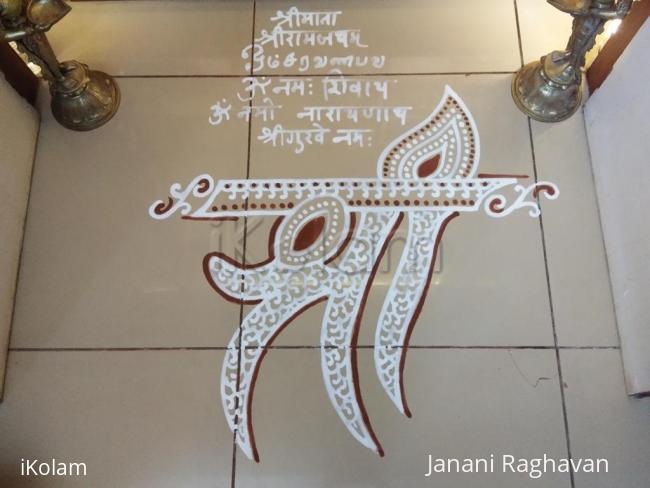 श्रीमाता
श्रीरामजयम्
ஓம்சரவணபவ
ॐ नमः शिवाय
ॐ नमो नारायणाय
श्रीगुरवे नमः
iKolam
iKolam
Janani Raghavan